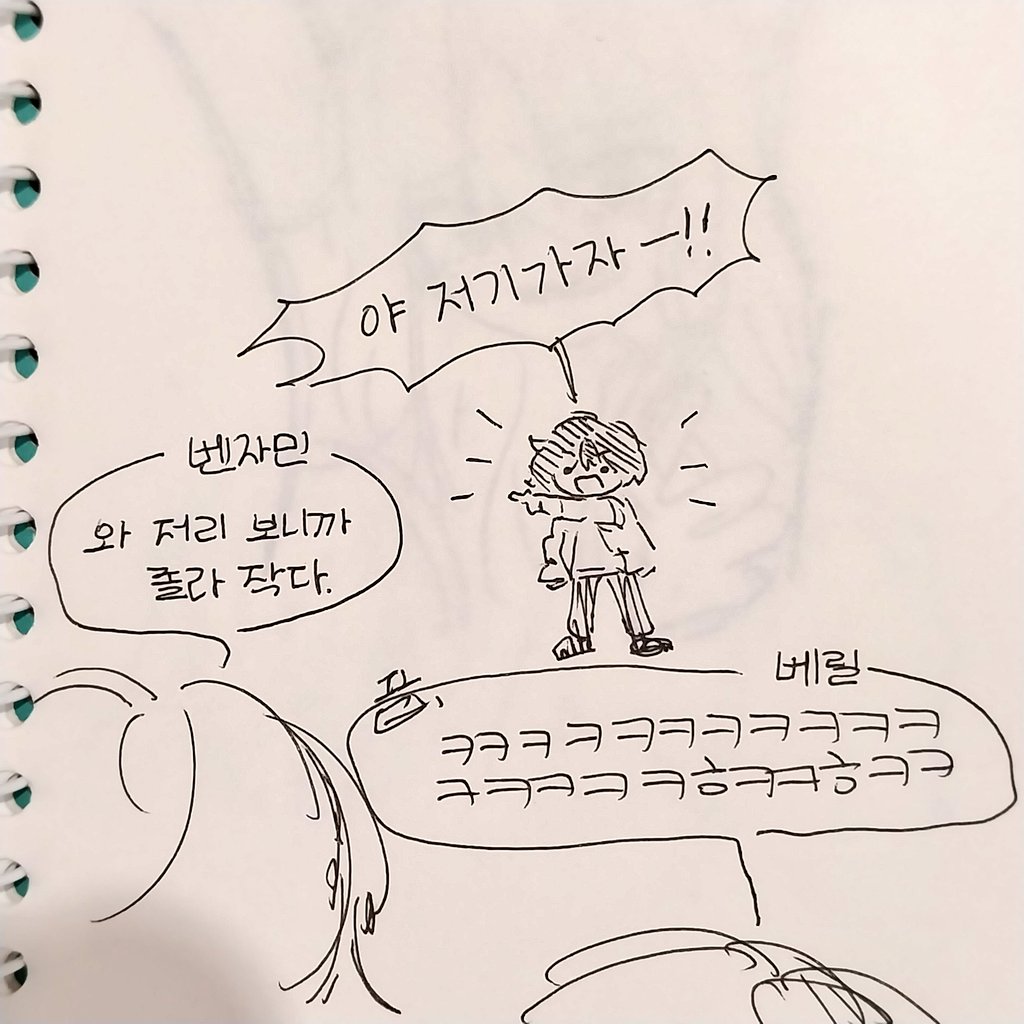 야 저기가자ー!!
벤자민
와 저리 보니까
졸라 작다.
베릴
풉,
ㅋㅋㅋㅋㅋㅋㅋㅋㅋㅋㅋ
ㅋㅋㅋㅋㅋㅎㅋㅋㅎㅋㅋ